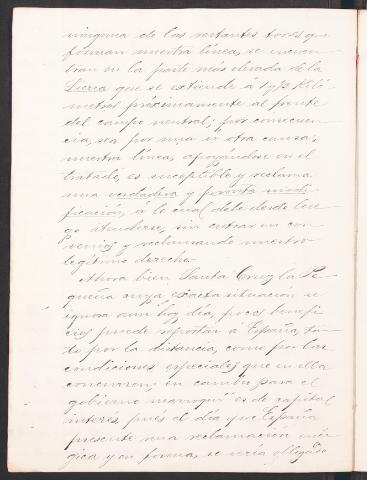 ninguna de los restantes fosos que
forman nuestra línea, se encuen-
tran en la parte más elevada de la
Sierra que se extiende á 1 y 1/2 Kiló-
metros próximamente al frente
del campo neutral; por consecuen-
cia, sea por una ú otra causa,
nuestra línea, apoyándose en el
tratado, es susceptible y reclama
una verdadera y pronta modi-
ficación, á lo cual debe desde lue-
go atenderse, sin entrar en con-
venios y reclamando nuestro
legítimo derecho.
Ahora bien Santa Cruz la Pe-
queña cuya exacta situación se
ignora aun hoy día, pocos benefi-
cios puede reportar á España, tan-
to por la distancia, como por las
condiciones especiales que en ella
concurren, en cambio para el
gobierno marroquí es de capital
interés, pués el día que España
presente una reclamación enér-
gica y en forma, se vería obligado